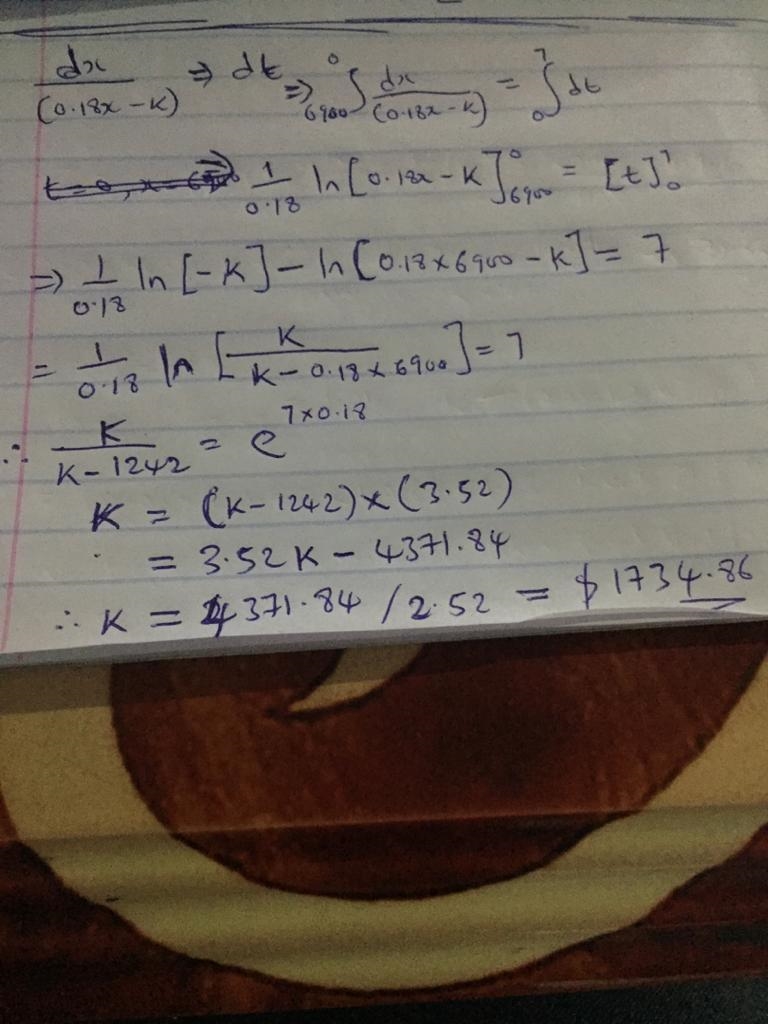 dx/(0.18x - K) ⇒ dt ⇒ ₆₉₀₀∫⁰ dx/(0.18x - K) = ₀∫⁷ dt
1/0.18 ln[0.18x - K]⁰₆₉₀₀ = [t]⁷₀
⇒ 1/0.18 ln[-K] - ln[0.18×6900 - K] = 7
= 1/0.18 ln[K/(K - 0.18×6900)] = 7
∴ K/(K - 1242) = e^(7×0.18)
K = (K - 1242)×(3.52)
= 3.52K - 4371.84
∴ K = 4371.84 / 2.52 = $1734.86